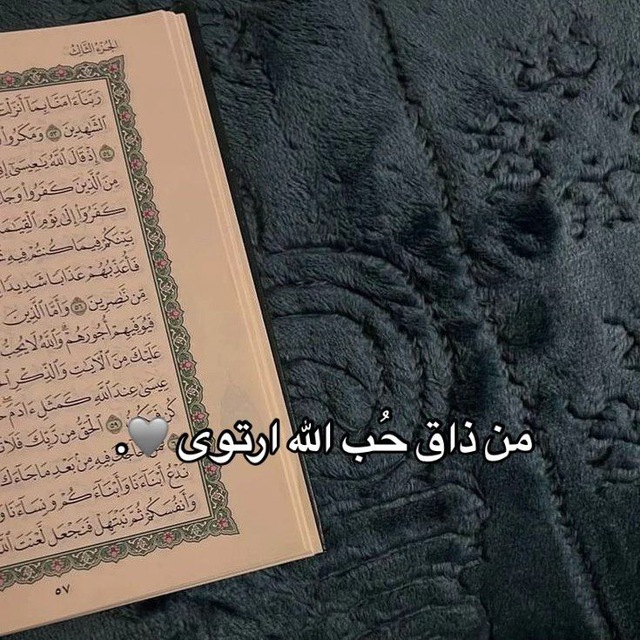 الجزء الثالث
ربنا ءامنا بما أنزلت
الشهدين ٥٣ ومكروا
٥٤ إذ قال الله يعيسى إ
من الذين كفروا وجا
كفروا إلى يوم القيمة
بينكم فيما كنتم فيه
فأعذبهم عذابا شديدا
من نصرين ٥٦ وأما الذين
فيوفيهم أجورهم والله لا يحب
عليك من الءايت والذكر
عيسى عند الله كمثل ءادم
كن فيكون ٥٩ الحق من ربك فلا ت
من ذاق حُب الله ارتوى 🤍.
فيه من بعد ما جاءك
ندع أبناءنا وأبناءكم ونساءنا
وأنفسكم ثم نبتهل فنجعل لعنت الله
٥٧